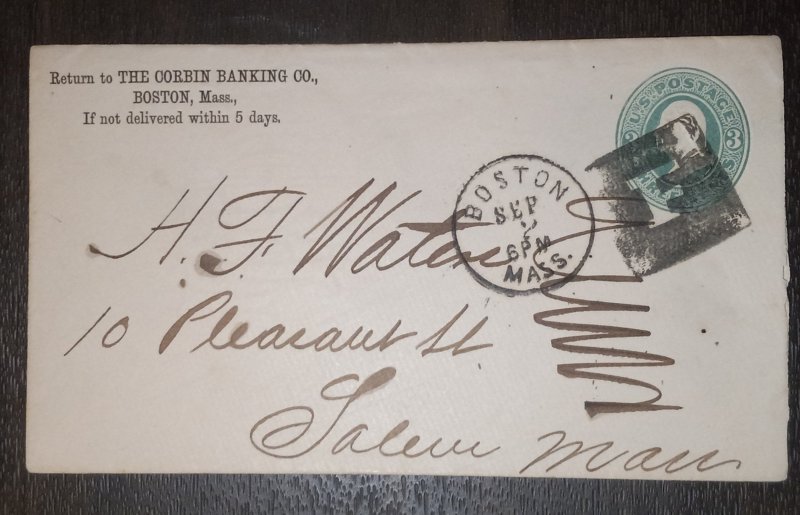 Return to THE CORBIN BANKING CO.,
BOSTON, Mass.,
If not delivered within 5 days.
U.S. POSTAGE
3
BOSTON
SEP
2
6 PM
MASS.
H. F. Waters
10 Pleasant St
Salem Mass